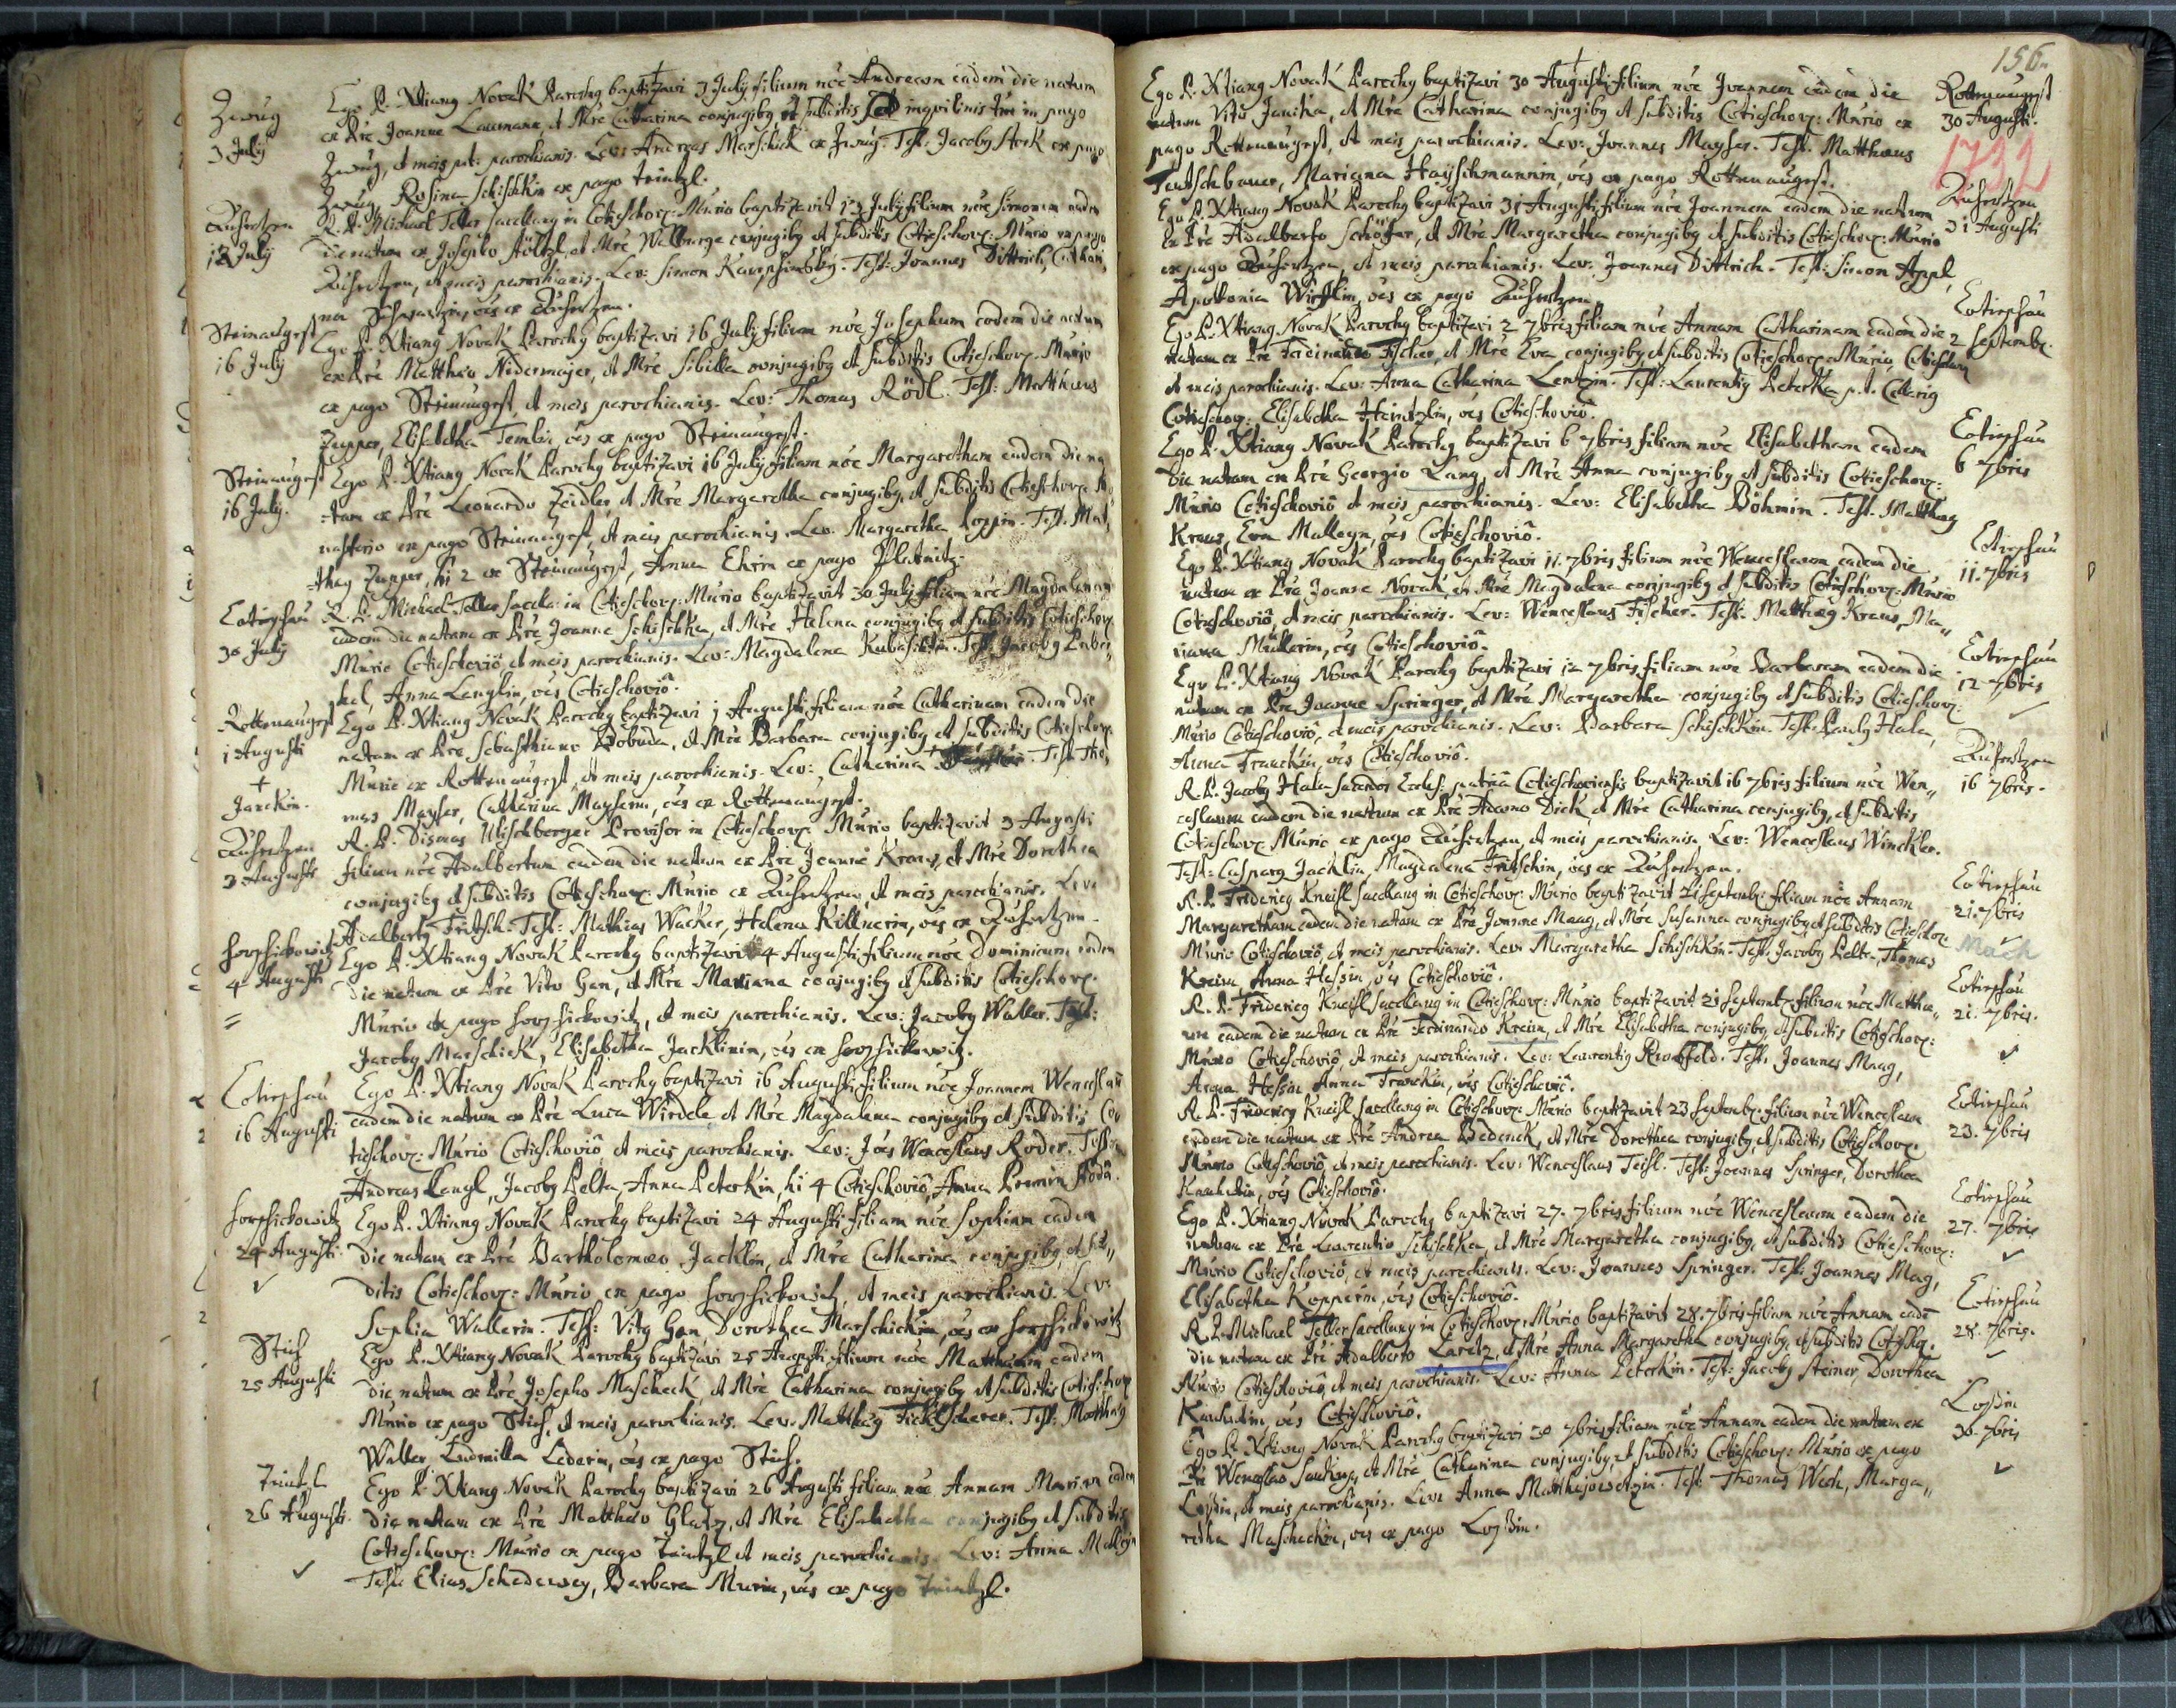 Zwug
3 July
Ego P. Xtiang Novak Parochg baptizavi 3 July filium nõe Andream eadem die natum
ex Pre Joanne Laumann, et Mre Catharina conjugibg et subditis inquilinis in pago
Zwug, et meis parochianis. Lev: Andreas Marschick ex Zwug. Test. Jacobg Stork ex pago
Zwug, Rosina Schischkin ex pago Trinkzl.
Zuhertzen
R. P. Michael Teller Sacellang in Cotieschov: Murio baptizavit 13 July filium nõe Simonem eadem
13 July
die natum ex Josepho Höltzl, et Mre Walburga conjugibg et subditis Cotieschov: Murio ex pago
Zuhertzen, et meis parochianis. Lev: Simon Test: Joannes Dittrich, Cathari,,
na oẽs ex Zuhertzen.
Steinaugest
Ego P. Xtiang Novak Parochg baptizavi 16 July filium nõe Josephum eadem die natum
16 July
ex Pre Matthæo Nidermajer, et Mre Sibilla conjugibg et subditis Cotieschov: Murio
ex pago Steinaugest, et meis parochianis. Lev: Thomas Rödl. Test: Matthæus
Zupper, Elisabetha Temlin oẽs ex pago Steinaugest.
Steinaugest
Ego P. Xtiang Novak Parochg baptizavi 16 July filiam nõe Margaretham eadem die na
16 July.
tam ex Pre Leonardo Zeidler, et Mre Margaretha conjugibg, et subditis Cotieschov: Mo,,
nasterio ex pago Steinaugest, et meis parochianis. Lev. Margaretha Poppin. Test. Mat,,
thæg Zupper, hi 2 ex Steinaugest, Anna ex pago
Cotieschau
R. P. Michael Teller Sacella: in Cotieschov: Murio baptizavit 30 July filiam nõe Magdalenam
30 July
eadem die natam ex Pre Joanne Schischka, et Mre Helena conjugibg et subditis Cotieschov.
Murio Cotieschoviô, et meis parochianis. Lev: Magdalena Test. Jacobg
Anna Langlin, oẽs Cotieschoviô.
Rottenaugest
Ego P. Xtiang Novak Parochg baptizavi 1 Augusti filiam nõe Catharinam eadem die
1 Augusti
natam ex Pre Sebastiano Woboda, et Mre Barbara conjugibg et subditis Cotieschov.
Murio ex Rottenaugest, et meis parochianis. Lev: Catharina Test Tho,,
+
Janckin.
mas Mayser, Catharina Mayserin, oẽs ex Rottenaugest.
Zuhertzen
R. P. Dismas Ulischberger Provisor in Cotieschov: Murio baptizavit 3 Augusti
3 Augusti
filium nõe Adalbertum eadem die natum ex Pre Joanne Kraus, et Mre Dorothea
conjugibg et subditis Cotieschov: Murio ex Zuhertzen, et meis parochianis. Lev:
Adalbertg Fritsch. Test: Mathias Wacker, Helena Küllnerin, oẽs ex Zuhertzen.
Horschickowitz
Ego P. Xtiang Novak Parochg baptizavi 4 Augusti filium nõe Dominicum eadem
4 Augusti
die natum ex Pre Vito Gan, et Mre Mariana conjugibg et subditis Cotieschov.
=
Murio ex pago Horschickowitz, et meis parochianis. Lev: Jacobg Waller. Test:
Jacobg Marschick, Elisabetha Jacklinin, oẽs ex Horschickowitz.
Cotieschau
Ego P. Xtiang Novak Parochg baptizavi 16 Augusti filium nõe Joannem Wenceslaũ
16 Augusti
eadem die natum ex Pre Luca Wirdele, et Mre Magdalena conjugibg et subditis Co
tieschov: Murio Cotieschoviô et meis parochianis. Lev: Joẽs Wenceslaus Roder. Test.
Andreas Langl, Jacobg Pelta, Anna Peterkin, hi 4 Cotieschoviô, Anna
Horschickowitz
Ego P. Xtiang Novak Parochg baptizavi 24 Augusti filiam nõe Sophiam eadem
24 Augusti.
die natam ex Pre Bartholomæo Jacklin, et Mre Catharina conjugibg, et sub,,
✓
ditis Cotieschov: Murio ex pago Horschickowitz, et meis parochianis. Lev:
Sophia Wallerin. Test: Vitg Gan, Dorothea Marschickin, oẽs ex Horschickowitz
Stich
Ego P. Xtiang Novak Parochg baptizavi 25 Augusti filium nõe Matthæum eadem
25 Augusti
die natum ex Pre Josepho Mascheck, et Mre Catharina conjugibg et subditis Cotieschov
Murio ex pago Stich, et meis parochianis. Lev. Matthæg Ficktscherer. Test: Matthæg
Waller, Ludmilla Lederin, oẽs ex pago Stich.
Trintzl
Ego P. Xtiang Novak Parochg baptizavi 26 Augusti filiam nõe Annam Mariam eadem
26 Augusti.
die natam ex Pre Matthæo Glatz, et Mre Elisabetha conjugibg et subditis
Cotieschov: Murio ex pago Trintzl et meis parochianis. Lev: Anna
✓
Test: Elias Schedewey, Barbara Murin, oẽs ex pago Trintzl.
156
Ego P. Xtiang Novak Parochg baptizavi 30 Augusti filium nõe Joannem eadem die
Rottenaugest
30 Augusti.
natum Vito Janika, et Mre Catharina conjugibg et subditis Cotieschov: Murio ex
pago Rottenaugest, et meis parochianis. Lev: Joannes Mayser. Test. Matthæus
1732
Teutschbauer, Mariana Hayschmannin, oẽs ex pago Rottenaugest.
Zuhertzen
Ego P. Xtiang Novak Parochg baptizavi 31 Augusti filium nõe Joannem eadem die natum
31 Augusti
ex Pre Adalberto Schöffer, et Mre Margaretha conjugibg et subditis Cotieschov: Murio
ex pago Zuhertzen, et meis parochianis. Lev: Joannes Dittrich. Test: Simon Appl,
Apollonia Wirfflin, oẽs ex pago Zuhertzen.
Cotieschau
Ego P. Xtiang Novak Parochg baptizavi 2 7bris filiam nõe Annam Catharinam eadem die
2 Septemb:
natam ex Pre Ferdinando Fischer, et Mre Eva conjugibg et subditis Cotieschov: Murio, Cotieschov
et meis parochianis. Lev: Anna Catharina Lentzin. Test: Laurentig Peterka p.t. Cellarig
Cotieschov: Elisabetha Heintzlin, oẽs Cotieschoviô.
Cotieschau
Ego P. Xtiang Novak Parochg baptizavi 6 7bris filiam nõe Elisabetham eadem
6 7bris
die natam ex Pre Georgio Lang, et Mre Anna conjugibg et subditis Cotieschov:
Murio Cotieschoviô et meis parochianis. Lev: Elisabetha Böhmin. Test. Matthæg
Kraus, Eva Malleyn, oẽs Cotieschoviô.
Cotieschau
Ego P. Xtiang Novak Parochg baptizavi 11. 7bris filium nõe Wenceslaum eadem die
11. 7bris
natum ex Pre Joanne Novak, et Mre Magdalena conjugibg et subditis Cotieschov: Murio
Cotieschoviô, et meis parochianis. Lev: Wenceslaus Fischer. Test: Matthæg Kraus, Ma,,
riana Müllerin, oẽs Cotieschoviô.
Cotieschau
Ego P. Xtiang Novak Parochg baptizavi 12 7bris filiam nõe Barbaram eadem die
12 7bris
natam ex Pre Joanne Springer, et Mre Margaretha conjugibg et subditis Cotieschov:
✓
Murio Cotieschoviô, et meis parochianis. Lev: Barbara Schischkin. Test. Paulg Hala,
Anna Franckin, oẽs Cotieschoviô.
Zuhertzen
R. D. Jacobg Hala Sacerdos Eccles: patriâ Cotieschoviensis baptizavit 16 7bris filium nõe Wen,,
16 7bris.
ceslaum eadem die natum ex Pre Adamo Dick, et Mre Catharina conjugibg, et subditis
Cotieschov: Murio ex pago Zuhertzen, et meis parochianis. Lev: Wenceslaus Winckler.
Test: Casparg Jacklin, Magdalena Fritschin, oẽs ex Zuhertzen.
Cotieschau
R. P. Fridericg Kneissl Sacellang in Cotieschov: Murio baptizavit 21 Septemb: filiam nõe Annam
21. 7bris
Margaretham eadem die natam ex Pre Joanne Maag, et Mre Susanna conjugibg et subditis Cotieschov:
✓
Mach
Murio Cotieschoviô, et meis parochianis. Lev: Margaretha Schischkin. Test. Jacobg Pelta, Thomas
Kreim, Anna Hessin, oẽs Cotieschoviô.
Cotieschau
R. P. Fridericg Kneissl Sacellang in Cotieschov: Murio baptizavit 21 Septemb: filium nõe Matthæ,,
21. 7bris.
um eadem die natum ex Pre Ferdinando Kreim, et Mre Elisabetha conjugibg, et subditis Cotieschov:
✓
Murio Cotieschoviô, et meis parochianis. Lev: Laurentig Test. Joannes Maag,
Anna Hessin Anna Franckin, oẽs Cotieschoviô.
Cotieschau
R. P. Fridericg Kneissl Sacellang in Cotieschov: Murio baptizavit 23 Septemb: filium nõe Wenceslaum
23. 7bris
eadem die natum ex Pre Andrea Bedenck, et Mre Dorothea conjugibg, et subditis Cotieschov:
Murio Cotieschoviô, et meis parochianis. Lev: Wenceslaus Teissl. Test: Joannes Springer, Dorothea
oẽs Cotieschoviô.
Cotieschau
Ego P. Xtiang Novak Parochg baptizavi 27. 7bris filium nõe Wenceslaum eadem die
27. 7bris
natum ex Pre Laurentio Schischka, et Mre Margaretha conjugibg, et subditis Cotieschov:
✓
Murio Cotieschoviô, et meis parochianis. Lev: Joannes Springer. Test: Joannes Mag,
Elisabetha Kopperin, oẽs Cotieschoviô.
Cotieschau
R. P. Michael Teller Sacellang in Cotieschov: Murio baptizavit 28. 7bris filiam nõe Annam eadẽ
28. 7bris.
die natam ex Pre Adalberto Laretz, et Mre Anna Margaretha conjugibg, et subditis Cotieschov.
Murio Cotieschoviô, et meis parochianis. Lev: Anna Peterkin. Test: Jacobg Steiner, Dorothea
oẽs Cotieschoviô.
Lossin
Ego P. Xtiang Novak Parochg baptizavi 30 7bris filiam nõe Annam eadem die natam ex
30. 7bris
Pre Wenceslao et Mre Catharina conjugibg, et subditis Cotieschov: Murio ex pago
✓
Lossin, et meis parochianis. Lev: Anna Test: Thomas Wech, Marga,,
retha Mascheckin, oẽs ex pago Lossin.